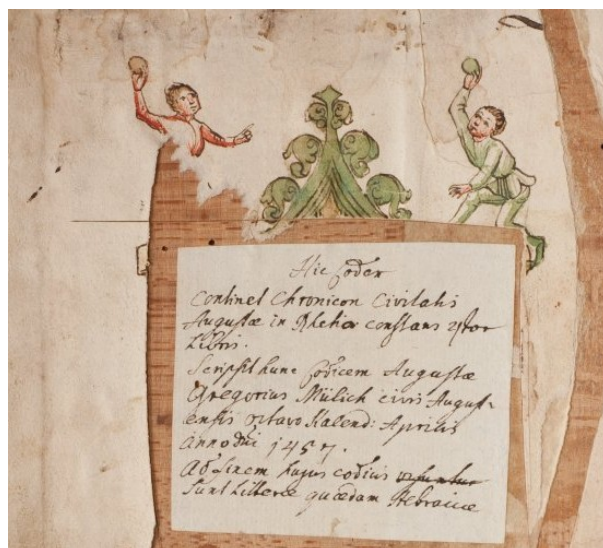 Hic Codex
Continet Chronicon Civitatis
Augustæ in Rhetia constans 4tuor
Libris.
Scripsit hunc Codicem Augustæ
Gregorius Mülich civis August-
ensis octavo Kalend: Aprilis
Anno dni 1457.
Ad finem hujus codicis
sunt Litteræ quædam Hebraicæ